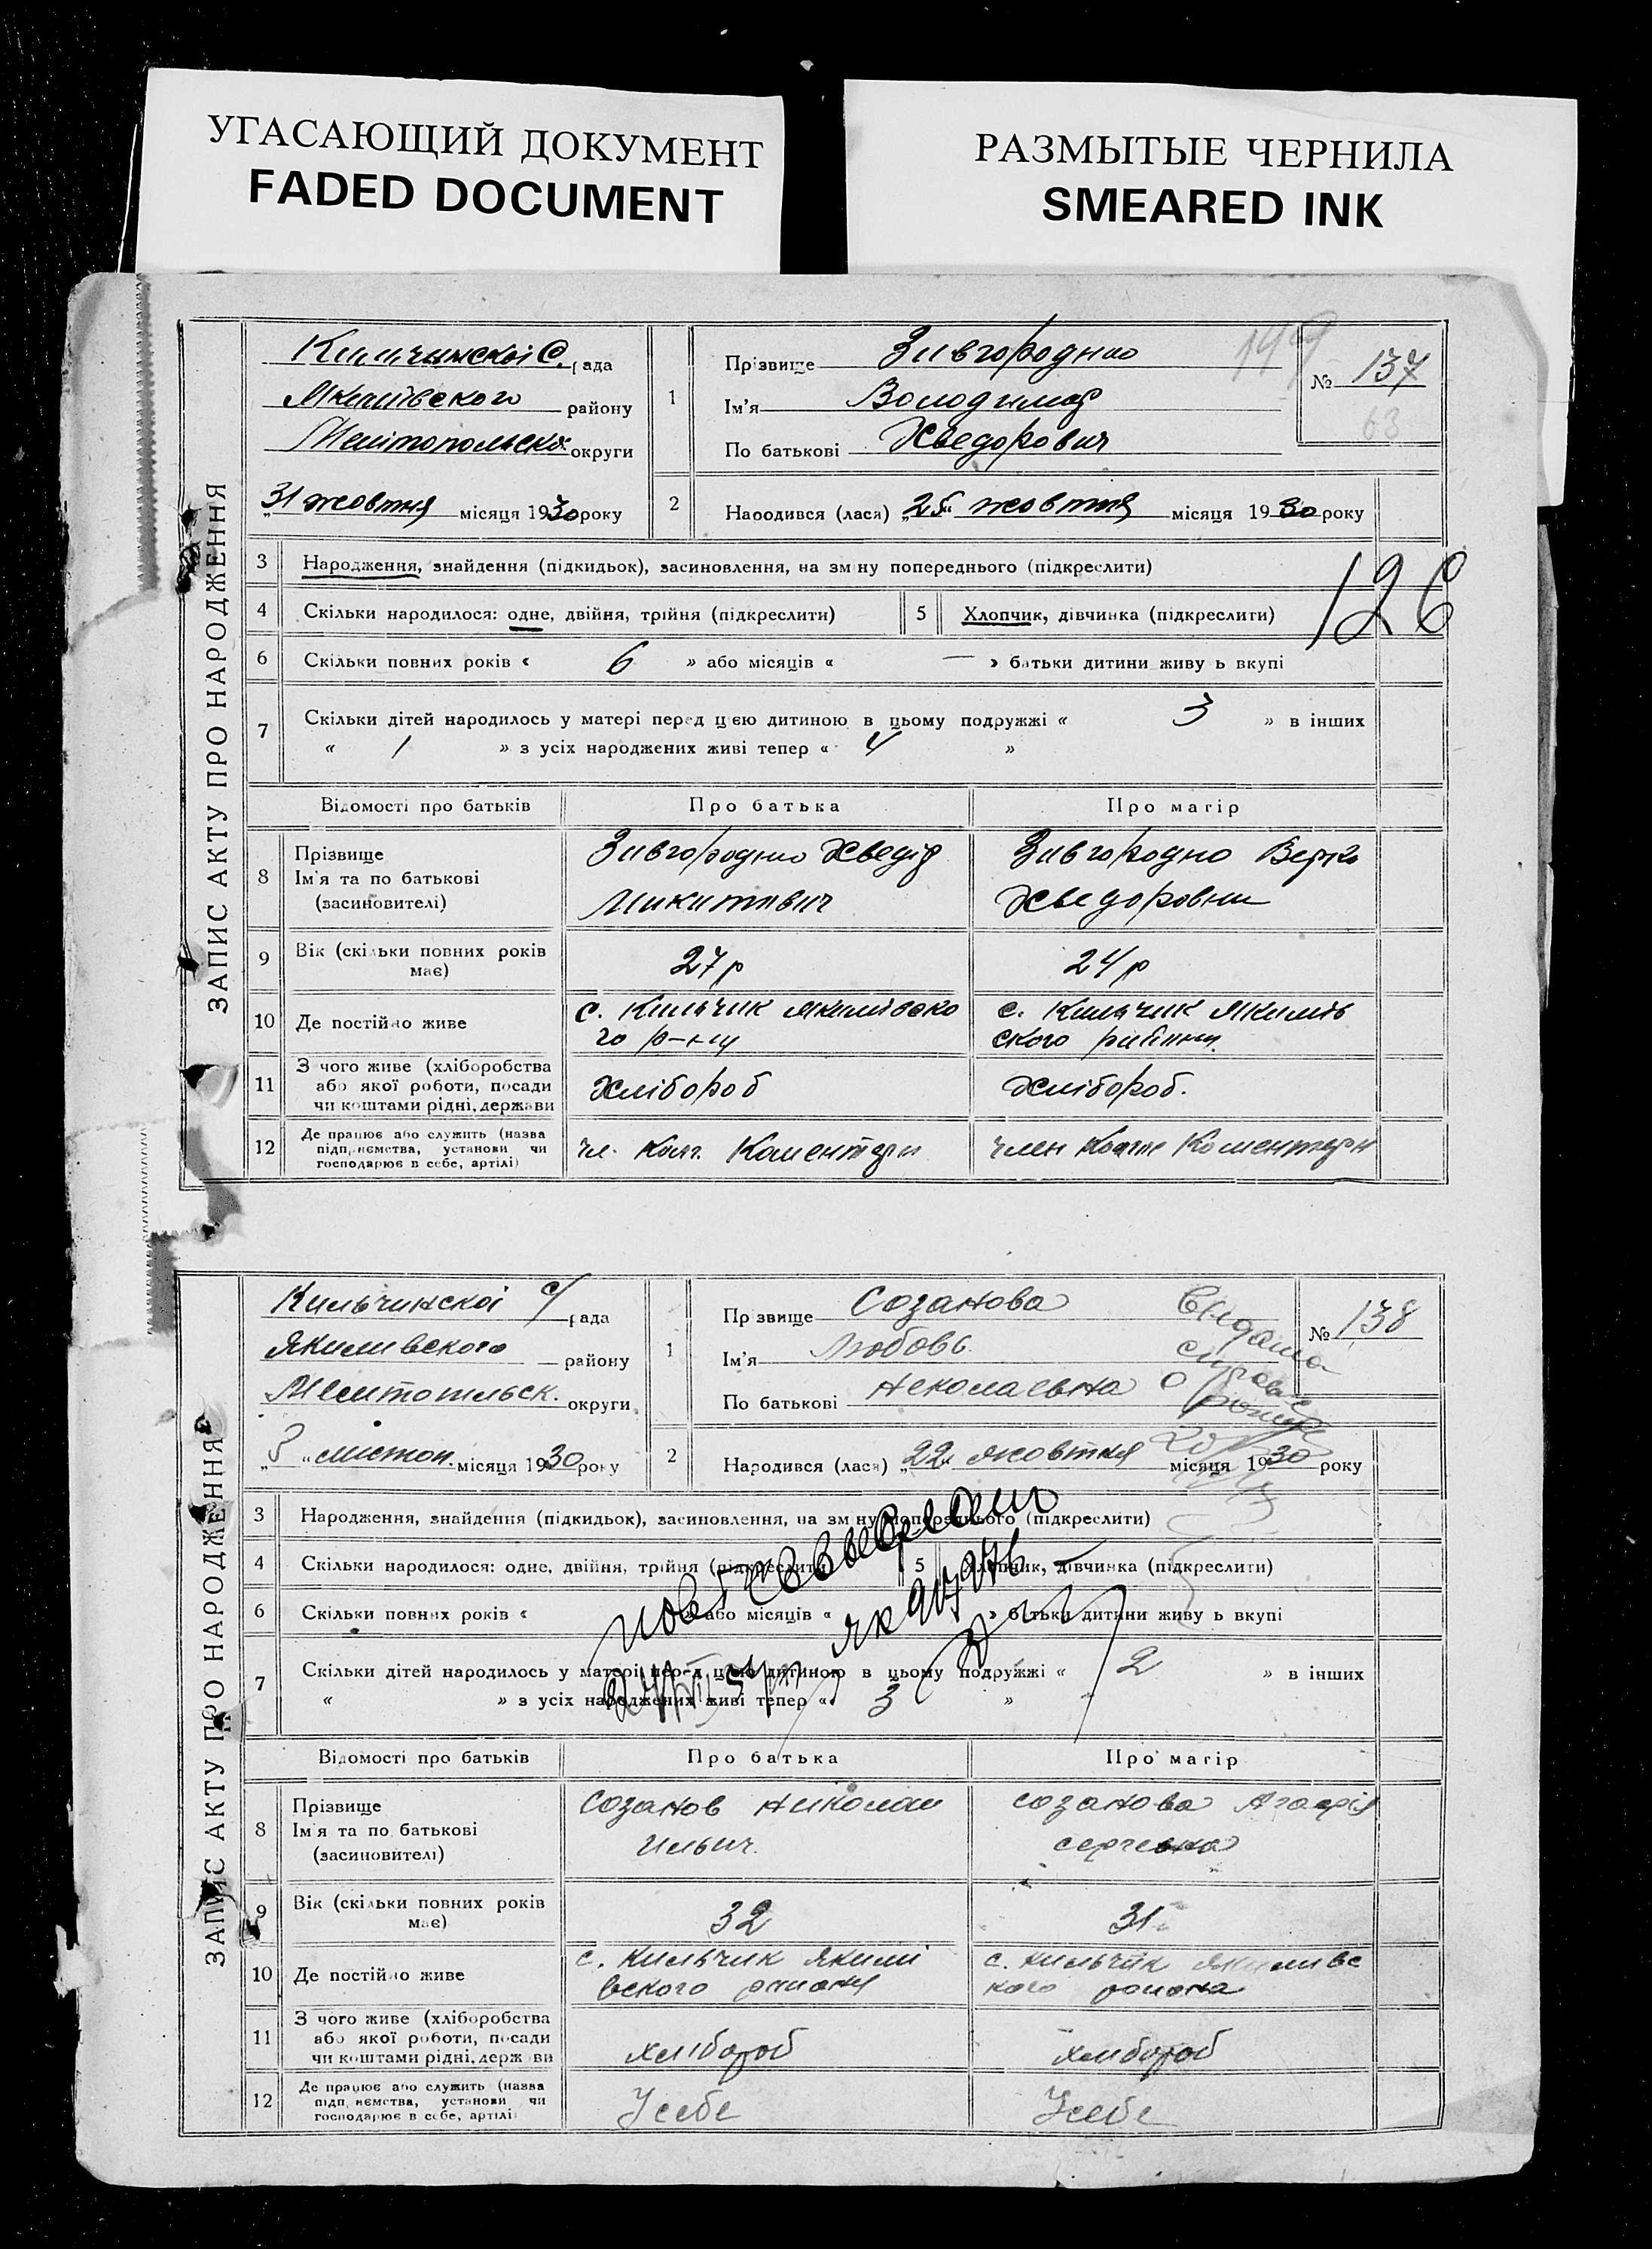 УГАСАЮЩИЙ ДОКУМЕНТ
FADED DOCUMENT
РАЗМЫТЫЕ ЧЕРНИЛА
SMEARED INK
ЗАПИС АКТУ ПРО НАРОДЖЕННЯ
рада
району
округи
31 жовтня місяця 1930 року
1
Прізвище
Ім'я Володимир
По батькові Хведорович
№ 137
63
2
Народився (лася) „25“ жовтня місяця 1930 року
3 Народження, знайдення (підкидьок), засиновлення, на зміну попереднього (підкреслити)
4 Скільки народилося: одне, двійня, трійня (підкреслити) 5 Хлопчик, дівчинка (підкреслити)
126
6 Скільки повних років « 6 » або місяців « — » батьки дитини живуть вкупі
7 Скільки дітей народилось у матері перед цією дитиною в цьому подружжі « 3 » в інших
« 1 » з усіх народжених живі тепер « 4 »
Відомості про батьків Про батька Про матір
8 Прізвище
Ім'я та по батькові
(засиновителі)
Хведір
Микитович
Хведоровна
9 Вік (скільки повних років
має)
27 р
24 р
10 Де постійно живе
с. Кильчик Якимівсько
го р-ну
с. Кильчик Якимів
ського
11 З чого живе (хліборобства
або якої роботи, посади
чи коштами рідні, держави
Хлібороб
Хлібороб.
12 Де працює або служить (назва
підприємства, установи чи
господарює в себе, артілі)
чл.
член
ЗАПИС АКТУ ПРО НАРОДЖЕННЯ
Кильчинскоі с/рада
Якимивского району
округи
3 „листоп. місяця 1930 року
1
Прізвище Созанова
Ім'я Любовь
По батькові Неколаевна
№ 138
2
Народився (лася) „22“ жовтня місяця 1930 року
3 Народження, знайдення (підкидьок), засиновлення, на зміну попереднього (підкреслити)
4 Скільки народилося: одне, двійня, трійня (підкреслити) 5 Хлопчик, дівчинка (підкреслити)
6 Скільки повних років « або місяців « » батьки дитини живуть вкупі
7 Скільки дітей народилось у матері перед цією дитиною в цьому подружжі « 2 » в інших
« » з усіх народжених живі тепер « 3 »
Відомості про батьків Про батька Про матір
8 Прізвище
Ім'я та по батькові
(засиновителі)
Созанов Николай
Ильич.
Созанова
9 Вік (скільки повних років
має)
32
31
10 Де постійно живе
с. Кильчик Якими
вского
с. Кильчик Якимивс
кого района
11 З чого живе (хліборобства
або якої роботи, посади
чи коштами рідні, держави
хлібороб
хлибороб
12 Де працює або служить (назва
підприємства, установи чи
господарює в себе, артілі)
Усебе
Усебе